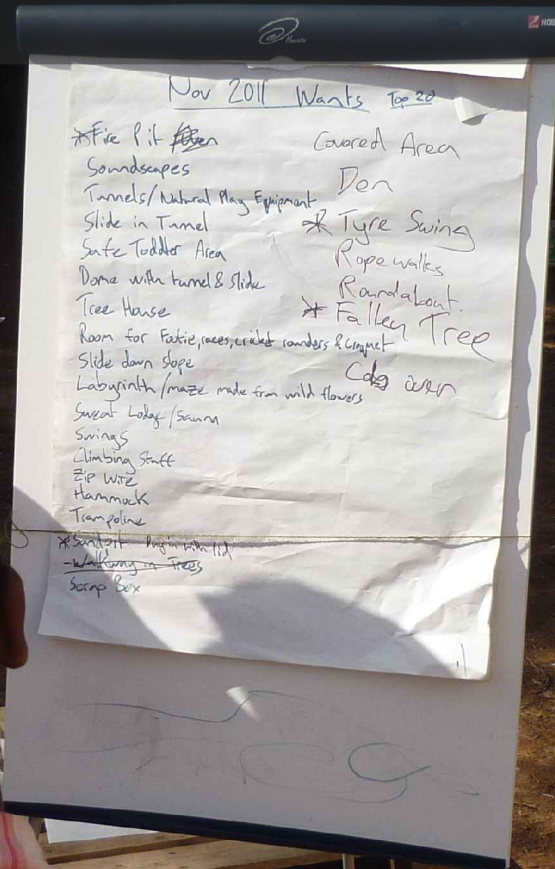 Nov 2011 Wants Top 20
*Fire Pit
Soundscapes
Tunnels/Natural Play Equipment
Slide in Tunnel
Safe Toddler Area
Dome with tunnel & slide
Tree House
Room for races, cricket rounders & Croquet
Slide down slope
Labyrinth/maze made from wild flowers
Sweat Lodge/Sauna
Swings
Climbing Stuff
Zip Wire
Hammock
Trampoline
*Sandpit with lid
-Walkway in Trees
Scrap Box
Covered Area
Den
* Tyre Swing
Rope walks
Roundabout.
* Fallen Tree
Cob oven